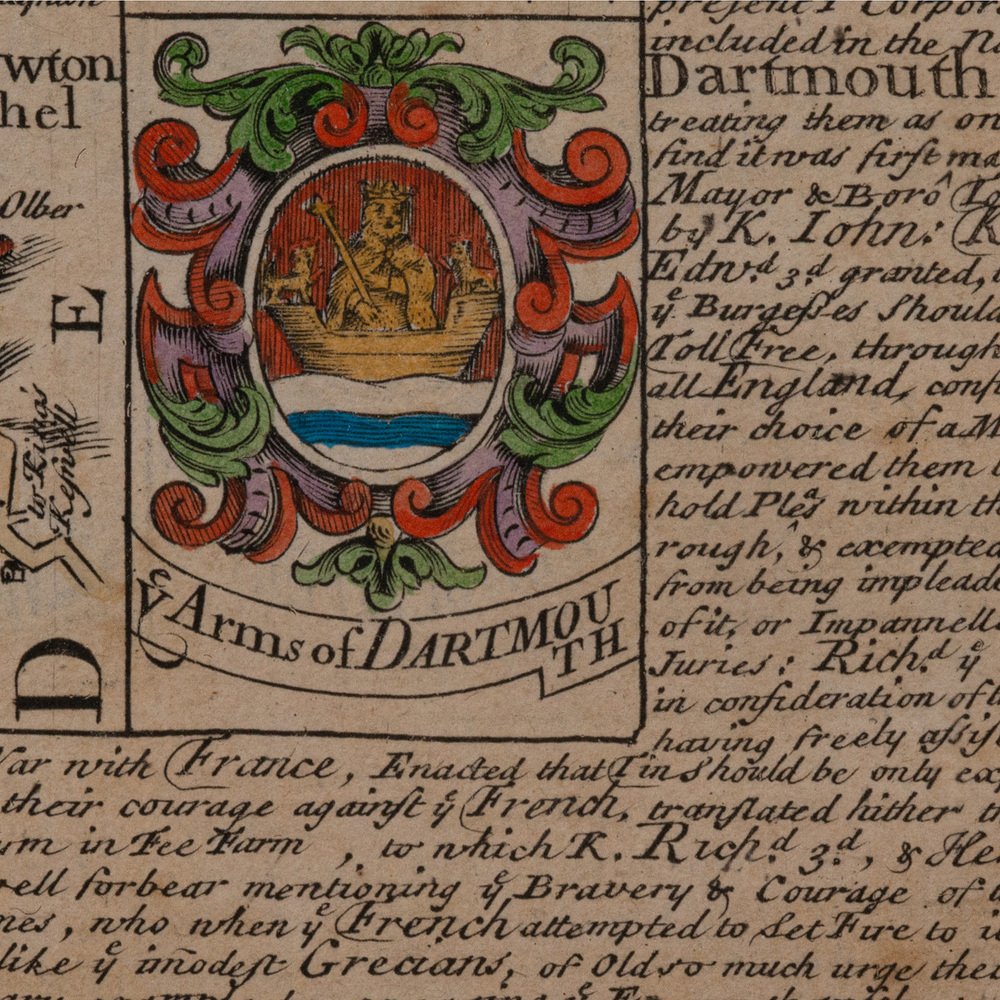 wton
hel
Olber
E
to Kings
Kefwell
D
yᵉ Arms of DARTMOU
TH
present
included in the
Dartmouth
treating them as on
find it was first ma
Mayor & Borô
by K. Iohn:
Edwᵈ 3ᵈ granted,
yᵉ Burgeſses Should
Toll Free, through
all England, conſ
their choice of a M
empowered them
hold Pleᵃs within th
rough, & exempted
from being implead
of it, or Impannell
Juries: Richᵈ yᵉ
in conſideration of
having freely aſſiſ
War with France, Enacted that Tin Should be only ex
their courage againſt yᵉ French, tranſlated hither
in Fee Farm, to which K. Richᵈ 3ᵈ, & He
well forbear mentioning yᵉ Bravery & Courage of
who when yᵉ French attempted to Set Fire to
like yᵉ im̃odeſt Grecians, of Old so much urge